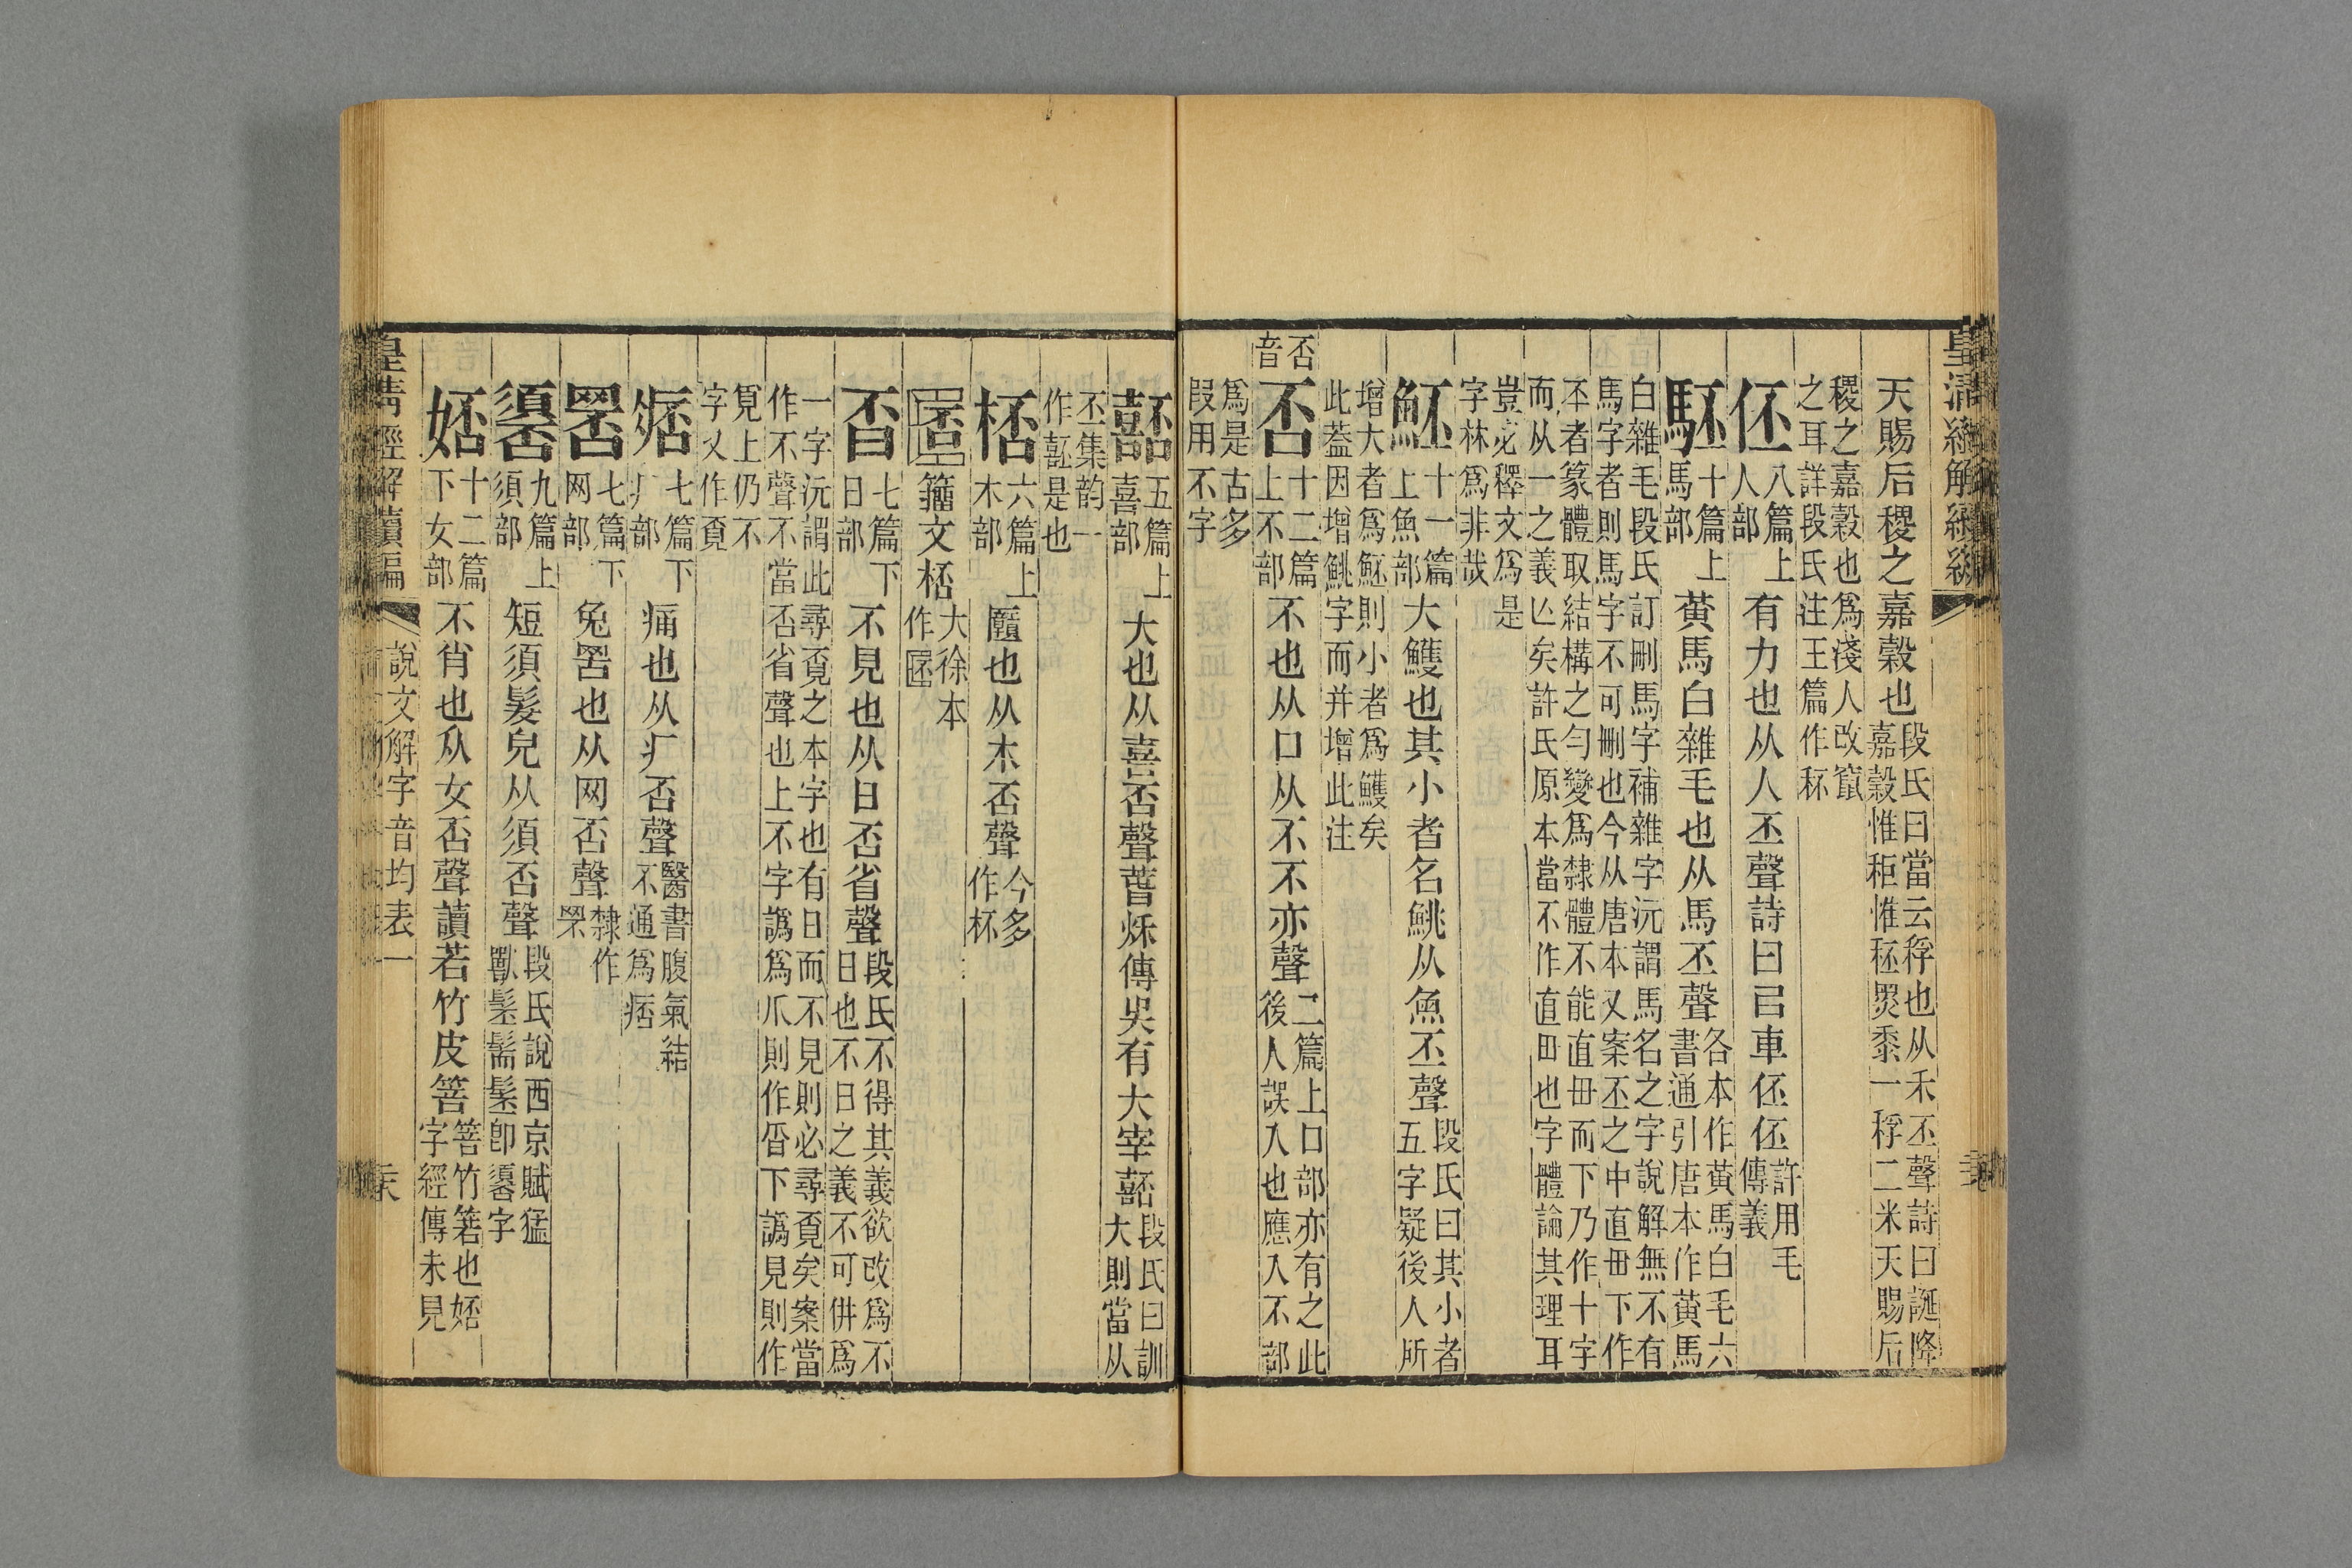 皇清經解續編
天賜后稷之嘉穀也段氏曰當云稃也从禾丕聲詩曰誕降嘉穀惟秬惟秠爂黍一稃二米天賜后
稷之嘉穀也爲淺人改竄之耳詳段氏注玉篇作秠
伾八篇上人部有力也从人丕聲詩曰㠯車伾伾許用毛傳義
駓十篇上馬部黃馬白雜毛也从馬丕聲各本作黃馬白毛六書通引唐本作黃馬
白雜毛段氏訂刪馬字補雜字沅謂馬名之字說解無不有馬字者則馬字不可刪也今从唐本又案丕之中直毌下作
丕者篆體取結構之勻變爲隸體不能直毌而下乃作十字而从一之義亾矣許氏原本當不作直毌也字體論其理耳
豈必釋文爲是字林爲非哉
魾十一篇上魚部大鱯也其小者名鮡从魚丕聲段氏曰其小者五字疑後人所
增大者爲魾則小者爲鱯矣此葢因增鮡字而并增此注
否音
否十二篇上不部不也从口从不不亦聲二篇上口部亦有之此後人誤入也應入不部
爲是古多叚用不字
嚭五篇上喜部大也从喜否聲萅秌傳吳有大宰嚭段氏曰訓大則當从
丕集韵一作噽是也
桮六篇上木部㔶也从木否聲今多作杯
𠥬籒文桮大徐本作𠥬
否七篇下日部不見也从日否省聲段氏不得其義欲改爲不日也不日之義不可倂爲
一字沅謂此尋覔之本字也有日而不見則必尋覔矣案當作不聲不當否省聲也上不字譌爲爪則作昏下譌見則作
覓上仍不字又作覔
痞七篇下疒部痛也从疒否聲醫書腹氣結不通爲痞
䍖七篇下网部兔罟也从网否聲隸作罘
䫠九篇上須部短須髮皃从須否聲段氏說西京賦猛獸髬髵髬卽䫠字
娝十二篇下女部不肖也从女否聲讀若竹皮箁箁竹箬也娝字經傳未見
皇清經解續編
說文解字音均表一